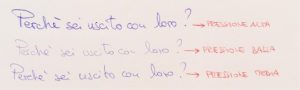 Perchè sei uscito con loro? → PRESSIONE ALTA
Perchè sei uscito con loro? → PRESSIONE BASSA
Perchè sei uscito con loro? → PRESSIONE MEDIA